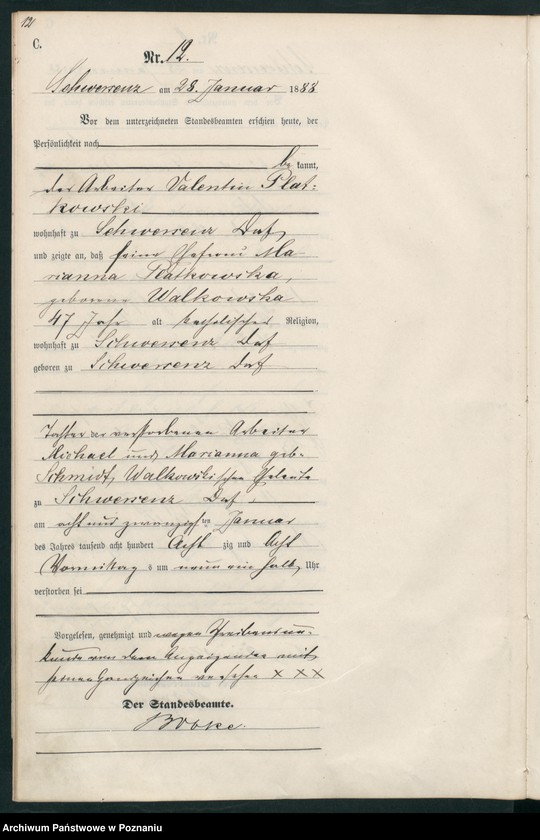 12
C.
Nr. 12.
Schwersenz am 28. Januar 1888
Vor dem unterzeichneten Standesbeamten erschien heute, der
Persönlichkeit nach
be kannt,
der Arbeiter Valentin Plat-
kowski
wohnhaft zu Schwersenz Dorf
und zeigte an, daß seine Ehefrau Ma-
rianna Platkowska,
geborene Walkowska
47 Jahr alt katholischer Religion,
wohnhaft zu Schwersenz Dorf
geboren zu Schwersenz Dorf
Tochter der verstorbenen Arbeiter
Michael und Marianna geb-
Schmidt, Walkowskischen Eheleute
zu Schwersenz Dorf
am acht und zwanzigsten Januar
des Jahres tausend acht hundert Acht zig und Acht
Vormittags um neun ein halb Uhr
verstorben sei
Vorgelesen, genehmigt und wegen Schreibensun-
kunde von dem Anzeigenden mit
seinen Handzeichen versehen x x x
Der Standesbeamte.
Archiwum Państwowe w Poznaniu